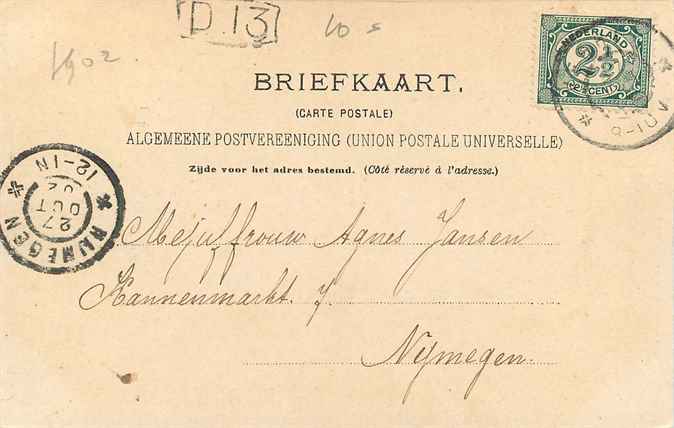 D.13
10 s
1902
NEDERLAND
2½
2½ CENT
8-10 V
BRIEFKAART.
(CARTE POSTALE)
ALGEMEENE POSTVEREENIGING (UNION POSTALE UNIVERSELLE)
Zijde voor het adres bestemd. (Côté réservé à l'adresse.)
NIJMEGEN
27
OCT
02
12-1N
Mejuffrouw Agnes Jansen
Kannenmarkt. 7.
Nijmegen.